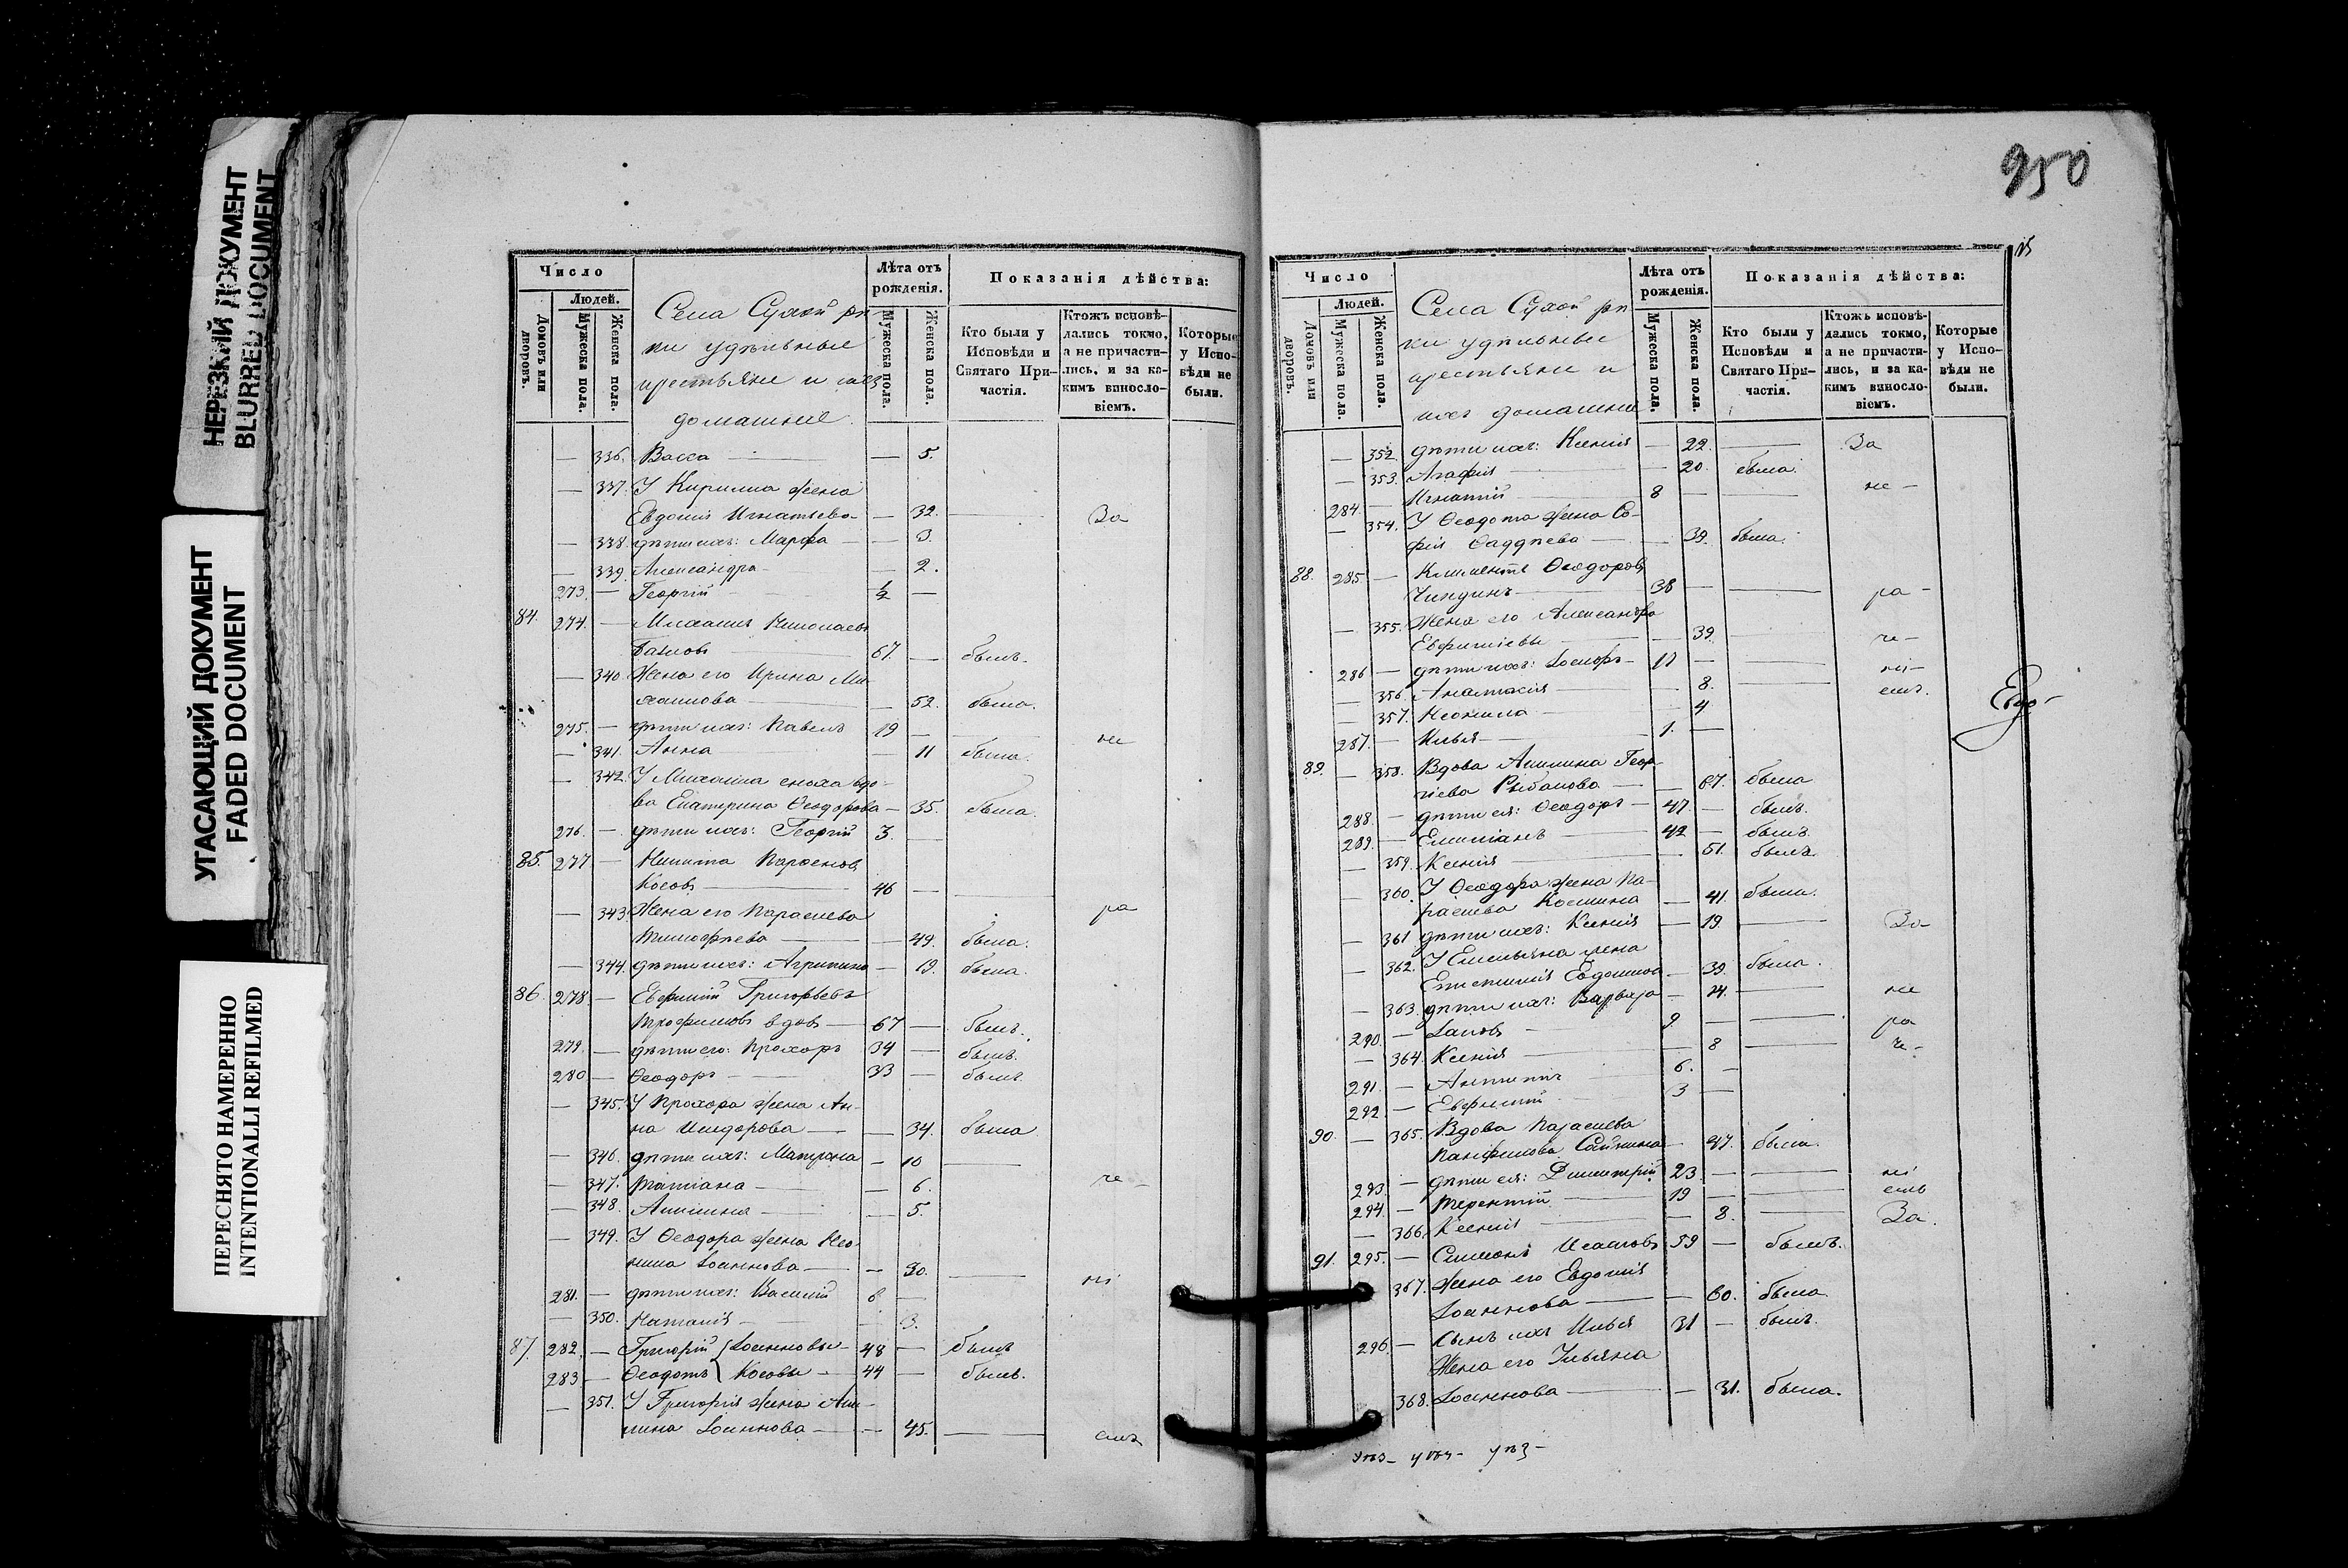 НЕРЕЗКИЙ ДОКУМЕНТ
BLURRED DOCUMENT
УГАСАЮЩИЙ ДОКУМЕНТ
FADED DOCUMENT
ПЕРЕСНЯТО НАМЕРЕННО
INTENTIONALLI REFILMED
Число
Людей.
Домовъ или дворовъ.
Мужеска пола.
Женска пола.
Села Сухой рѣ-
ки удѣльные
крестьяне и ихъ
домашніе.
Лѣта отъ рожденія.
Мужеска пола.
Женска пола.
Показанія дѣйства:
Кто были у Исповѣди и Святаго Причастія.
Ктожъ исповѣ-дались токмо, а не причасти-лись, и за ка-кимъ винословіемъ.
Которые у Испо-вѣди не были.
— 336. Васса — — 5.
— 337. У Кирилла жена
Евдокія Игнатьева — 32. — За
— 338. дѣти ихъ: Марфа — — 3.
— 339. Александра — — 2.
273. — Георгій — ½ —
84. 274. — Михаилъ Николаевъ
67. — былъ.
— 340. Жена его Ирина Ми-
хаилова — — 52. была.
275. — дѣти ихъ: Павелъ 19 — — не
— 341. Анна — 11 была.
— 342. У Михаила сноха вдо-
ва Екатерина Ѳеодорова — 35. была.
276. — дѣти ихъ: Георгій 3. —
85. 277 — Никита Парѳеновъ
Косовъ — 46 — — ра
— 343. Жена его Параскева
Тимофѣева — — 49. была.
— 344. дѣти ихъ: Агрипина — 19. была.
86. 278. — Евфимій Григорьевъ
Трофимовъ вдовъ — 67 — былъ.
279. — дѣти его: Прохоръ 34 — былъ.
280 — Ѳеодоръ — 33 — былъ.
— 345. У Прохора жена Ан-
на Исидорова — — 34. была
— 346. дѣти ихъ: Матрона — 10 — че-
— 347. Татіана — — 6.
— 348. Акилина — — 5.
— 349. У Ѳеодора жена Нео-
нила Іоаннова — — 30. — ні
281. — дѣти ихъ: Василій 6 —
— 350. Наталія — — 3.
87. 282. — Григорій } Іоанновы — 48 — былъ
283 — Ѳеодотъ } Косовы — 44 — былъ.
— 351. У Григорія жена Аки-
лина Іоаннова — — 45. — емъ
950
Число
Людей.
Домовъ или дворовъ.
Мужеска пола.
Женска пола.
Села Сухой рѣ-
ки удѣльные
крестьяне и
ихъ домашніе
Лѣта отъ рожденія.
Мужеска пола.
Женска пола.
Показанія дѣйства:
Кто были у Исповѣди и Святаго При-частія.
Ктожъ исповѣ-дались токмо, а не причасти-лись, и за ка-кимъ винословіемъ.
Которые у Испо-вѣди не были.
— 352. дѣти ихъ: Ксенія — 22. — За
— 353. Агафія — — 20. была.
284. — Игнатій — 8 — — не-
— 354. У Ѳеодота жена Со-
фія Ѳаддѣева — — 39. была.
88. 285. — Климентъ Ѳеодоровъ
38 — — ра-
— 355. Жена его Александра
— 39. — че-
286 — дѣти ихъ: — — ні-
— 356. Анастасія — — 8. — емъ.
— 357. Неонила — — 4
287. — Илья — 1. —
Евдо-
89. — 358. Вдова Акилина Геор-
гіева — — 67. была
288. — дѣти ея: Ѳеодоръ — 47. — былъ.
289. — Емиліанъ — 42 — былъ.
— 359. Ксенія — — 51. былъ.
— 360. У Ѳеодора жена Па-
раскева Космина — 41. была.
— 361 дѣти ихъ: Ксенія — 19. — За-
— 362. У Емельяна жена
Евдокимова — 39. была.
— 363. дѣти ихъ: Варвара — 14. — не
290. — Іаковъ — 9 — — ра
— 364. Ксенія — — 8 — че-
291. — Антипъ — 6. —
292. — Евфимій — 3 —
90. — 365. Вдова Параскева
Панфилова — 47. была.
293. — дѣти ея: Димитрій 23. — — ні
294. — Терентій — 19 — — емъ
— 366. Ксенія — — 8. — За.
91. 295. — Симеонъ Исааковъ 59 — былъ.
367. Жена его Евдокія
Іоаннова — — 60. была.
296. — Сынъ ихъ Илья 31 — былъ.
Жена его Ульяна
368. Іоаннова — — 31. была.